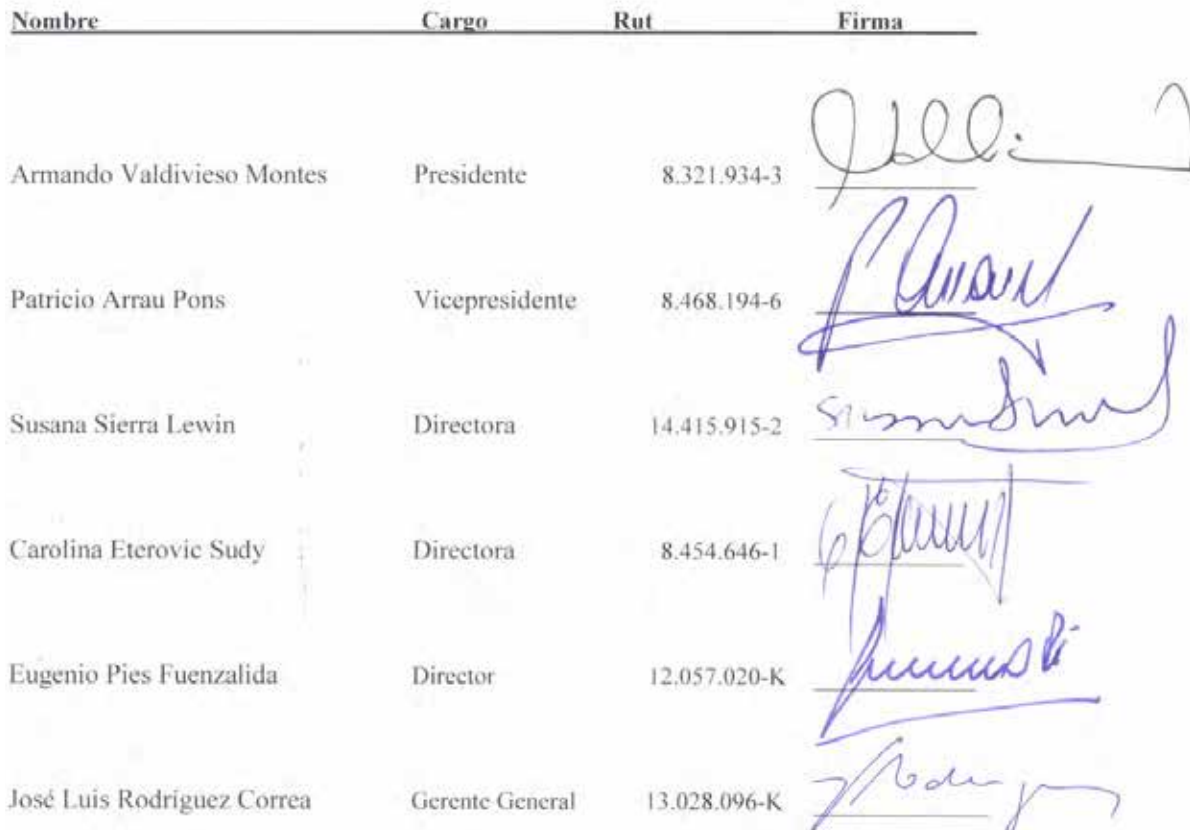 Nombre Cargo Rut Firma
Armando Valdivieso Montes Presidente 8.321.934-3
Patricio Arrau Pons Vicepresidente 8.468.194-6
Susana Sierra Lewin Directora 14.415.915-2
Carolina Eterovic Sudy Directora 8.454.646-1
Eugenio Pies Fuenzalida Director 12.057.020-K
José Luis Rodríguez Correa Gerente General 13.028.096-K